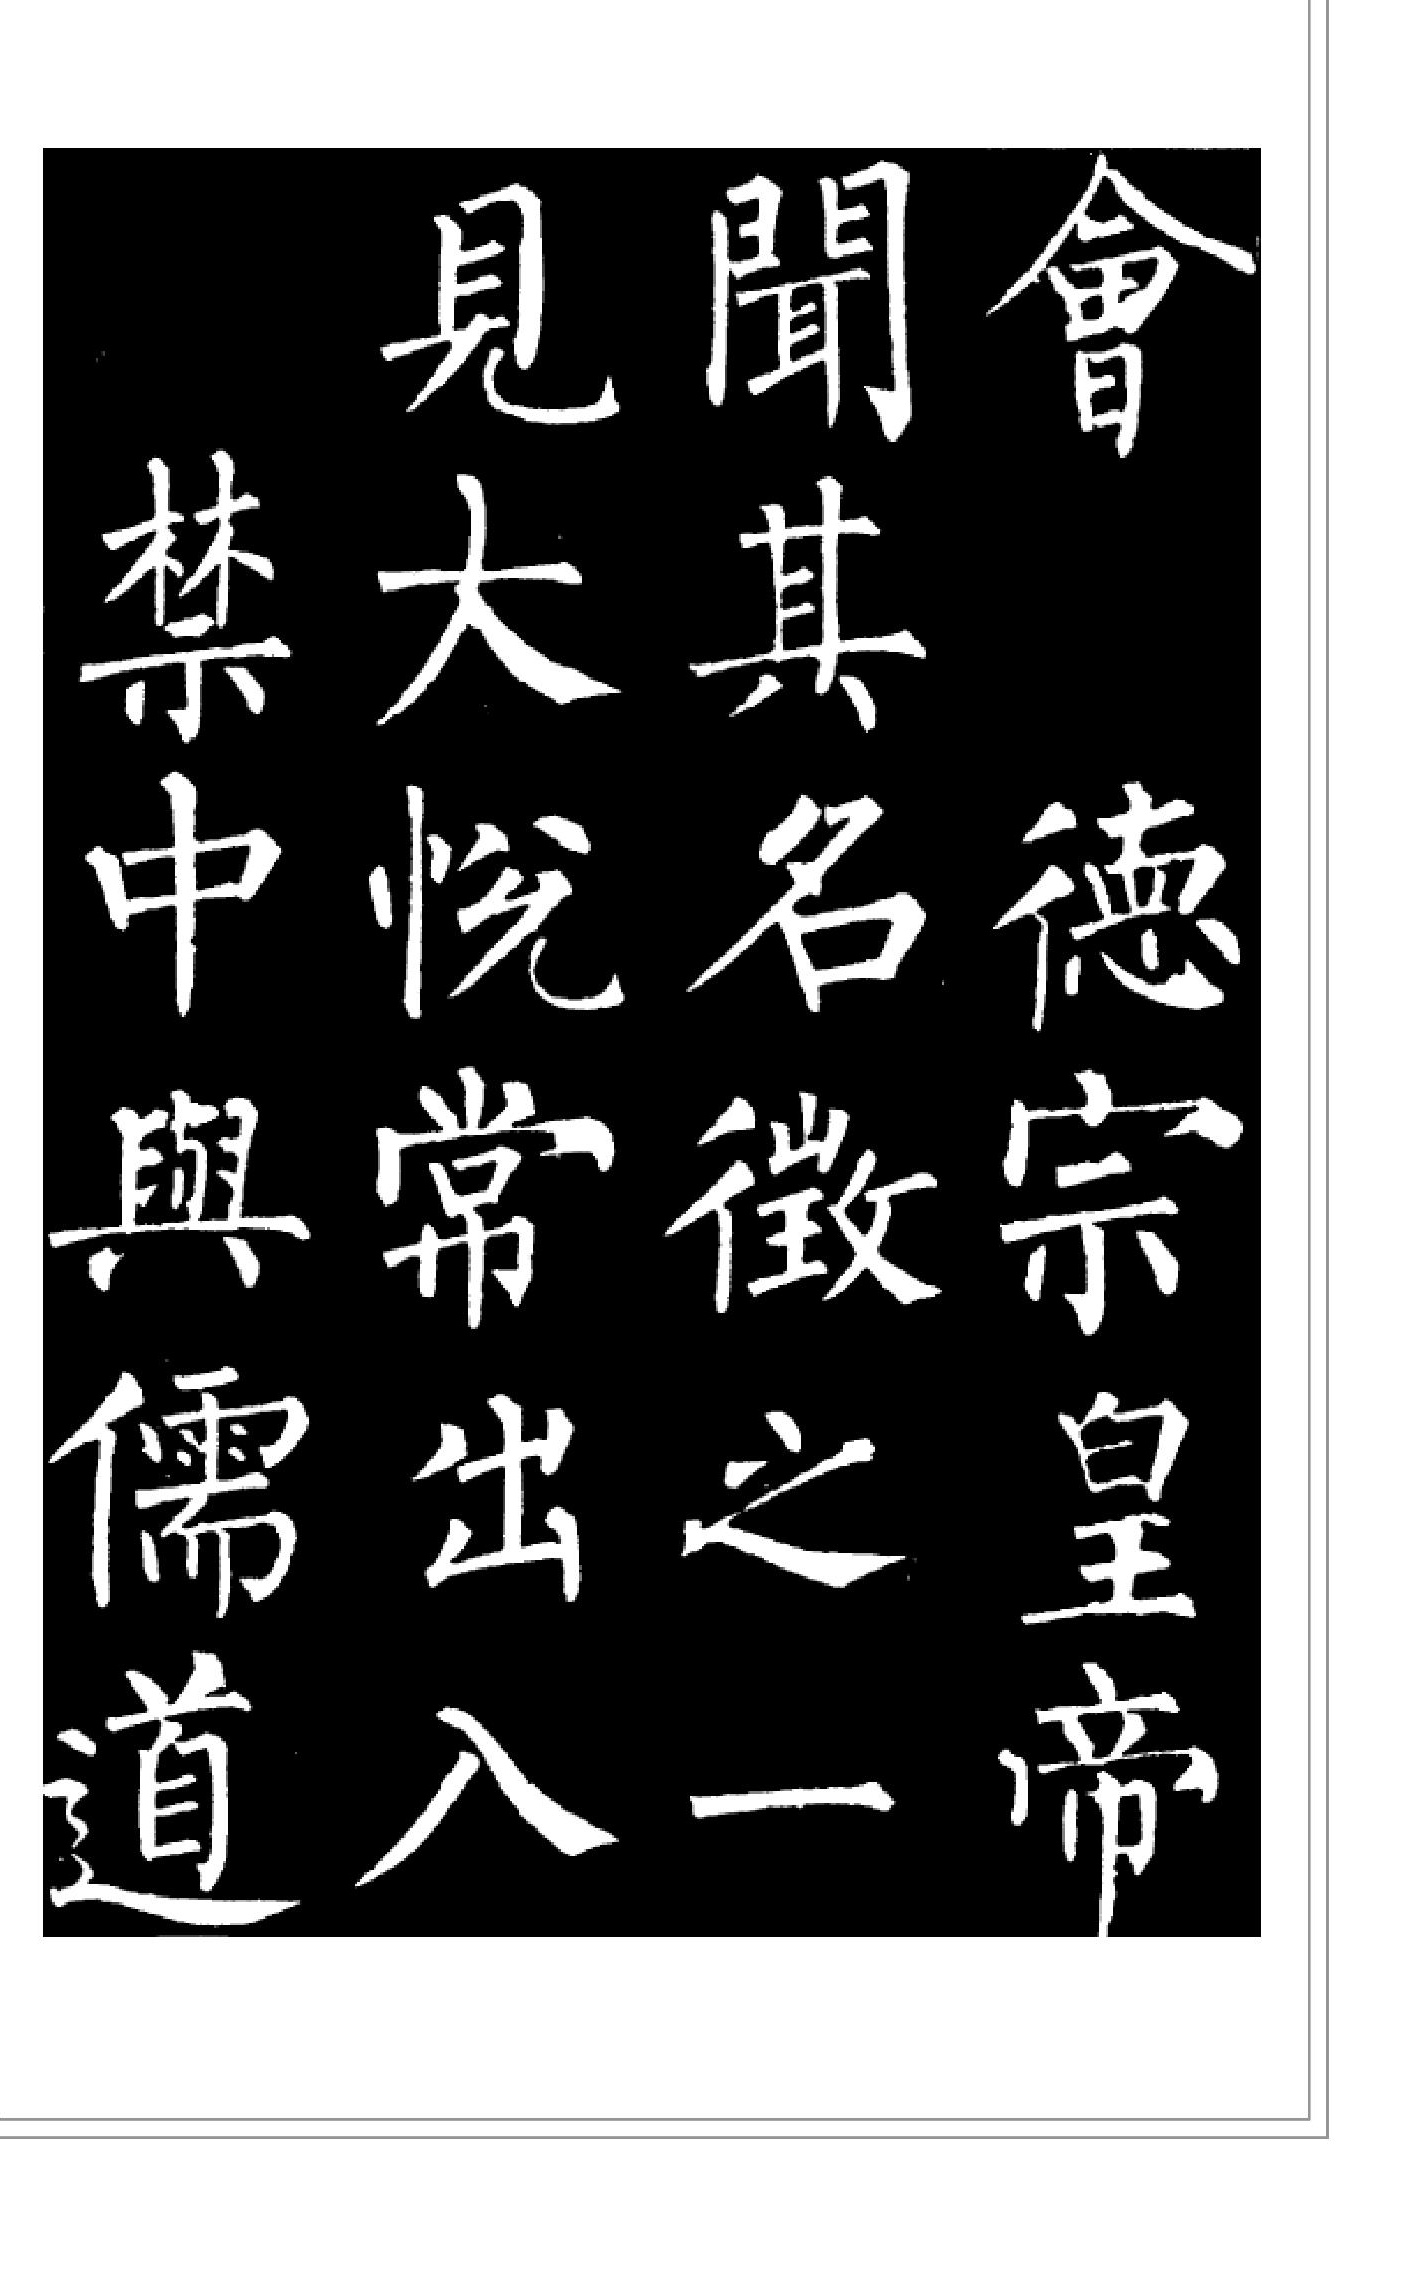 會 德宗皇帝
聞其名徵之一
見大悅常出入
禁中與儒道